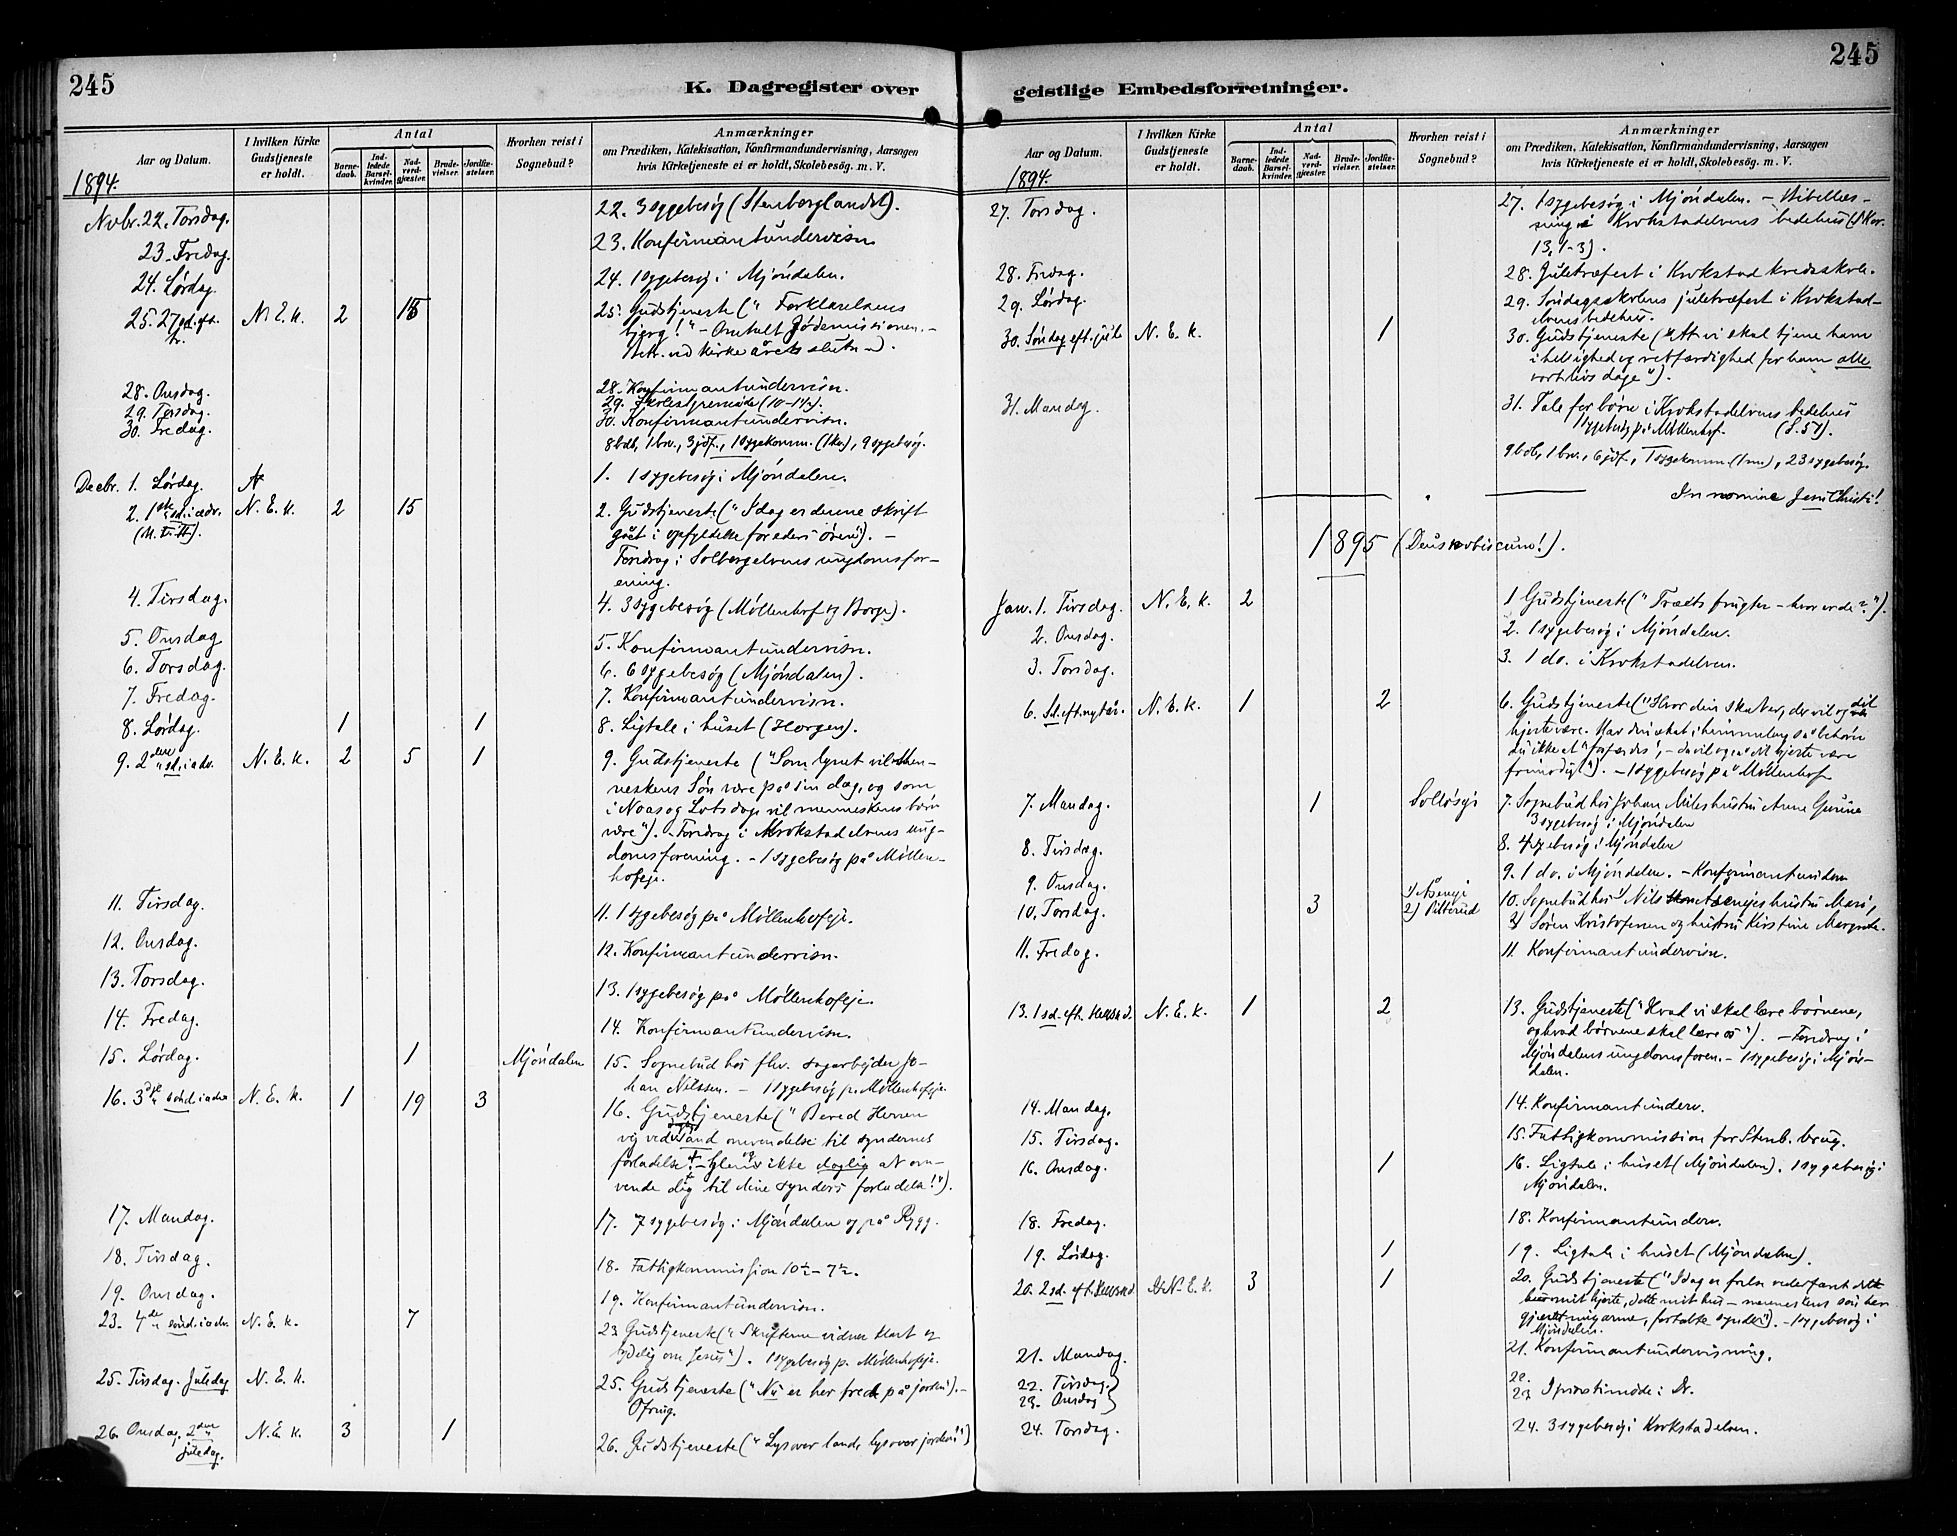 245
K. Dagregister over
Aar og Datum.
I hvilken Kirke
Gudstjeneste
er holdt.
Antal
Barne-
daab.
Ind-
ledede
Barsel-
kvinder.
Nad-
verd-
gjæster.
Brude-
vielser.
Jordfæ-
stelser.
Hvorhen reist i
Sognebud?
Anmærkninger
om Prædiken, Katekisation, Konfirmandundervisning, Aarsagen
hvis Kirketjeneste ei er holdt, Skolebesög. m. V.
1894.
Novbr. 22. Torsdag. 22. 3 sygebesøg (Stenberglandet).
23. Fredag. 23. Konfirmantundervisn.
24. Lørdag. 24. 1 sygebesøg i Mjöndalen.
25. 27de s. eft. tr. N. E. K. 2 15 25. Gudstjeneste ("Forklarelsens
bjerg!" – Omtalt Jødemissionen. –
ved kirkeårets slutn –).
28. Onsdag. 28. Konfirmantundervisn.
29. Torsdag. 29. Skolestyremøde
30. Fredag. 30. Konfirmantundervisn.
8 bdb, 1 brv., 3 jdf., 1 sygekomm. (1 kv.), 9 sygebesøg.
Decbr. 1. Lørdag. 1. 1 sygebesøg i Mjöndalen.
2. 1ste sd. i adv. N. E. K. 2 15 2. Gudstjeneste ("Idag er denne skrift
gået i opfyldelse for eders ören"). –
Foredrag i Solbergelvens ungdomsfor-
ening.
4. Tirsdag. 4. 3 sygebesøg (Möllenhof og Borge).
5. Onsdag 5. Konfirmantundervisn.
6. Torsdag. 6. 6 sygebesøg (Mjöndalen).
7. Fredag. 7. Konfirmantundervisn.
8. Lørdag. 1 1 8. Ligtale i huset (Horgen).
9. 2den sd. i adv. N. E. K. 2 5 1 9. Gudstjeneste ("Som lynet vil Men-
neskens Sön være på sin dag, og som
i Noas og Lots dage vil menneskens børn
være"). – Foredrag i Krokstadelvens ung-
domsforening. – 1 sygebesøg på Möllen-
hofeje.
11. Tirsdag. 11. 1 sygebesøg på Möllenhofeje.
12. Onsdag. 12. Konfirmantundervisn.
13. Torsdag. 13. 1 sygebesøg på Möllenhofeje.
14. Fredag. 14. Konfirmantundervisn.
15. Lørdag. 1 Mjöndalen 15. Sognebud hos fhv. sagarbejder Jo-
han Nilssen. – 1 sygebesøg p. Möllenhofeje.
16. 3die sönd. i adv. N. E. K. 1 19 3 16. Gudstjeneste ("Bered Herren
vej ved sand omvendelse til syndernes
forladelse! – Glem ikke daglig at om-
vende dig til dine synders forladelse!").
17. Mandag. 17. 7 sygebesøg i Mjöndalen og på Rygg.
18. Tirsdag. 18. Fattigkommission 10½ – 7½.
19. Onsdag. 19. Konfirmantundervisn.
23. 4de sönd. i adv. N. E. K. 7 23. Gudstjeneste ("Skrifterne vidner klart og
tydelig om Jesus"). 1 sygebesøg p. Möllenhofeje.
25. Tirsdag. Juledag N. E. K. 25. Gudstjeneste ("Nu er her fred på jorden"). –
Ofring.
26. Onsdag. 2den juledag. N. E. K. 3 1 26. Gudstjeneste ("Lys over land, lys over jorden!")
245
geistlige Embedsforretninger.
Aar og Datum.
I hvilken Kirke
Gudstjeneste
er holdt.
Antal
Barne-
daab.
Ind-
ledede
Barsel-
kvinder.
Nad-
verd-
gjæster.
Brude-
vielser.
Jordfæ-
stelser.
Hvorhen reist i
Sognebud?
Anmærkninger
om Prædiken, Katekisation, Konfirmandundervisning, Aarsagen
hvis Kirketjeneste ei er holdt, Skolebesög. m. V.
1894.
27. Torsdag. 27. 1 sygebesøg i Mjöndalen. – Bibellæs-
ning i Krokstadelvens bedehus (1 Kor.
13, 1-3).
28. Fredag. 28. Juletræfest i Krokstad kredsskole.
29. Lørdag. 29. Söndagsskolens juletræfest i Krokstad-
elvens bedehus.
30. Søndag eft. jul N. E. K. 1 30. Gudstjeneste ("At vi skal tjene ham
i hellighed og retfærdighed for ham alle
vort livs dage").
31. Mandag. 31. Tale for børn i Krokstadelvens bedehus
1 sygebesøg på Möllenhof. (S. 57).
9 bdb, 1 brv., 6 jdf., 1 sygekomm. (1 m.), 23 sygebesøg.
In nomine Jesu Christi!
1895 (Deus nobiscum!).
Jan. 1. Tirsdag. N. E. K. 2 1 Gudstjeneste ("Træets frugter – hvor er de?").
2. Onsdag. 2. 1 sygebesøg i Mjöndalen.
3. Torsdag. 3. 1 do. i Krokstadelven.
6. Sd. eft. nytår. N. E. K. 1 2 6. Gudstjeneste ("Hvor din skat er, der vil og dit
hjerte være. Har du skat i himmelen, så behøver
du ikke at "forfærdes", – da vil også dit hjerte være
frimodigt"). – 1 sygebesøg på Möllenhof
7. Mandag. 1 7. Sognebud hos Johan Nils hustru Anne
3 sygebesøg i Mjöndalen
8. Tirsdag. 8. 4 sygebesøg i Mjöndalen
9. Onsdag. 9. 1 do. i Mjöndalen. – Konfirmantunderv.
10. Torsdag. 3 1) Åseneje 2) Pilterud 10. Sognebud hos 1) Nils Åsenejes hustru Mari,
2) Sören Kristofersen og hustru Kirstine Margrete.
11. Fredag. 11. Konfirmantundervisn.
13. 1 sd. eft. Hell3kd. N. E. K. 1 2 13. Gudstjeneste ("Hvad vi skal lære børnene,
og hvad børnene skal lære os"). – Foredrag i
Mjöndalens ungdomsforen. – 1 sygebesøg i Mjön-
dalen.
14. Mandag. 14. Konfirmantunderv.
15. Tirsdag. 15. Fattigkommission for Stenb. brug.
16. Onsdag. 1 16. Ligtale i huset (Mjöndalen). 1 sygebesøg i
Mjöndalen.
18. Fredag. 18. Konfirmantunderv.
19. Lørdag. 1 19. Ligtale i huset (Mjöndalen).
20. 2 sd. eft. Hell3kd N. E. K. 3 1 20. Gudstjeneste ("Idag er frelse vederfaret dette
mit hjerte, dette mit hus – menneskens sön har
gjæstet mig arme, fortabte synder"). – 1 sygebesøg i
Mjöndalen.
21. Mandag. 21. Konfirmantundervisning.
22. Tirsdag. 22.
23. Onsdag 23. I præstemøde i Dr.
24. Torsdag. 24. 3 sygebesøg i Krokstadelven.